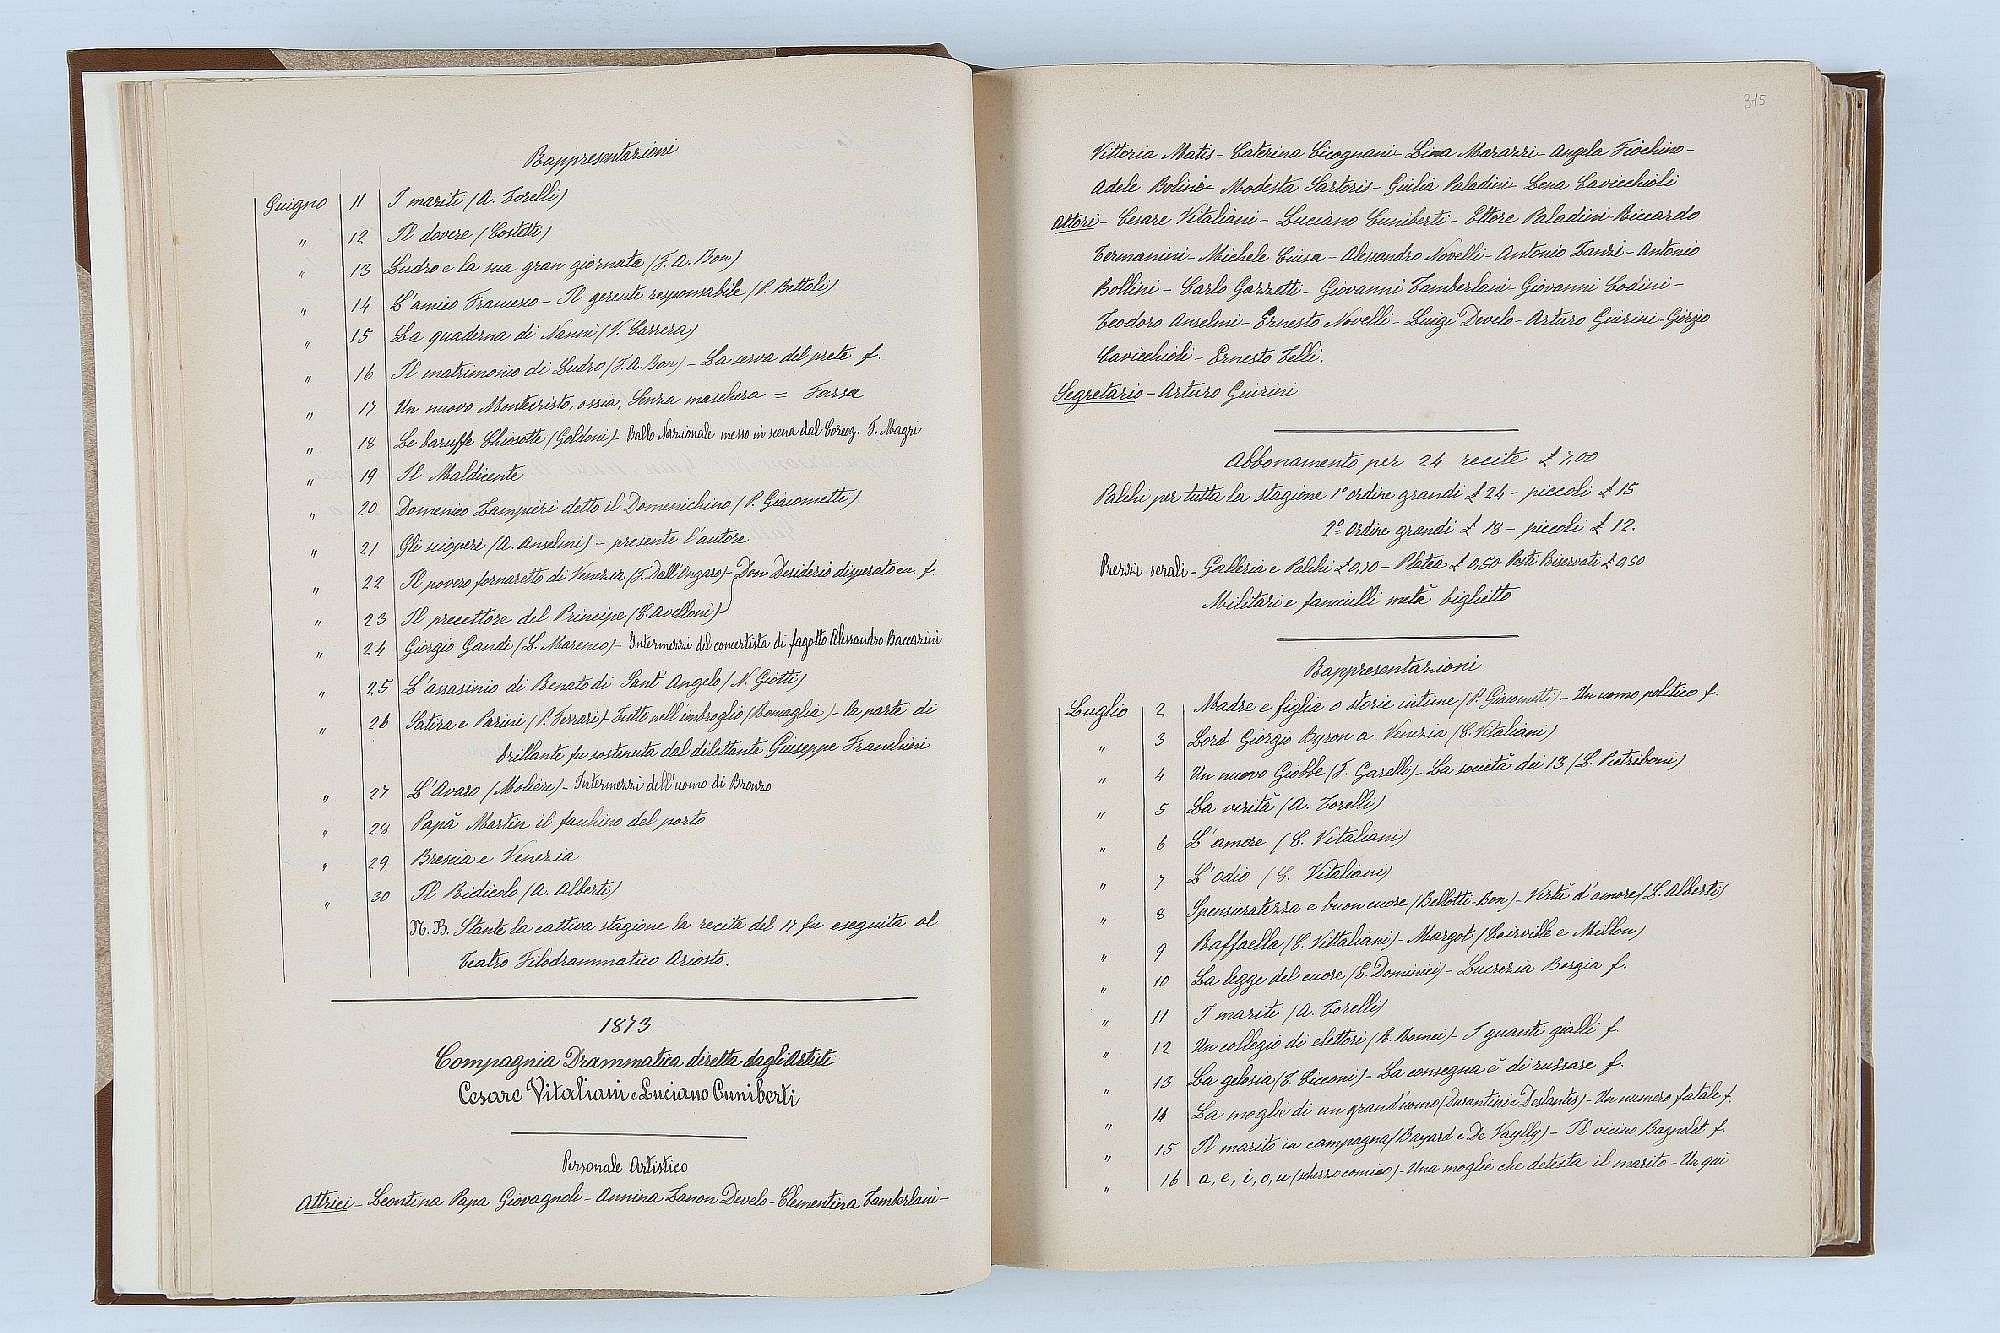 Rappresentazioni
Giugno 11 I mariti (A. Torelli)
„ 12 Il dovere (Costetti)
„ 13 Ludro e la sua gran giornata (F. A. Bon)
„ 14 L'amico Francesco - Il gerente responsabile (P. Bettoli)
„ 15 La quaderna di Nanni (V. Carrera)
„ 16 Il matrimonio di Ludro (F. A. Bon) - La serva del prete f.
„ 17 Un nuovo Montecristo, ossia, Senza maschera = Farsa
„ 18 Le baruffe Chiosotte (Goldoni) - Ballo Nazionale messo in scena dal Coreog. F. Magri
„ 19 Il Maldicente
„ 20 Domenico Zampieri detto il Domenichino (P. Giacometti)
„ 21 Gli scioperi (A. Anselmi) - presente l'autore
„ 22 Il povero fornaretto di Venezia (F. Dall'Ongaro) - Don Desiderio disperato ecc. f.
„ 23 Il precettore del Principe (C. Avelloni)
„ 24 Giorgio Gandi (L. Marenco) - Intermezzi del concertista di fagotto Alessandro Baccarini
„ 25 L'assasinio di Renato di Sant'Angelo (N. Giotti)
„ 26 Satira e Parini (P. Ferrari) - Tutto nell'imbroglio (Romaglia) - La parte di
brillante fu sostenuta dal dilettante Giuseppe Franchini
„ 27 L'Avaro (Moliere) - Intermezzi dell'uomo di Bronzo
„ 28 Papà Martin il fachino del porto
„ 29 Brescia e Venezia
„ 30 Il Ridicolo (A. Alberti)
N. B. Stante la cattiva stagione la recita del 17 fu eseguita al
Teatro Filodrammatico Ariosto.
1873
Compagnia Drammatica diretta dagli Artisti
Cesare Vitaliani e Luciano Cuniberti
Personale Artistico
Attrici - Leontina Papa Giovagnoli - Annina Zanon Develo - Clementina Tamberlani -
315
Vittoria Matis - Caterina Cicognani - Lina Marazzi - Angela Fiochino -
Adele Bolini - Modesta Sartoris - Giulia Paladini - Lena Cavicchioli
Attori - Cesare Vitaliani - Luciano Cuniberti - Ettore Paladini - Riccardo
Termanini - Michele Ciusa - Alessandro Novelli - Antonio Zanzi - Antonio
Bollini - Carlo Gazzetti - Giovanni Tamberlani - Giovanni Codini -
Teodoro Anselmi - Ernesto Novelli - Luigi Develo - Arturo Guirini - Giorgio
Cavicchioli - Ernesto Zelli.
Segretario - Arturo Guirini
Abbonamento per 24 recite £ 7,00
Palchi per tutta la stagione 1° ordine grandi £ 24 - piccoli £ 15
2° ordine grandi £ 18 - piccoli £ 12.
Prezzi serali - Galleria e Palchi £ 0,80 - Platea £ 0,50 Posti Riservati £ 0,50
Militari e fanciulli metà biglietto
Rappresentazioni
Luglio 2 Madre e figlia o storie intime (P. Giacometti) - Un uomo politico f.
„ 3 Lord Giorgio Byron a Venezia (C. Vitaliani)
„ 4 Un nuovo Giobbe (F. Garelli) - La società dei 13 (L. Pietriboni)
„ 5 La verità (A. Torelli)
„ 6 L'amore (C. Vitaliani)
„ 7 L'odio (C. Vitaliani)
„ 8 Spensieratezza e buon cuore (Bellotti-Bon) - Virtù d'amore (L. Alberti)
„ 9 Raffaella (C. Vittaliani) - Margot (Clairville e Millon)
„ 10 La legge del cuore (E. Dominici) - Lucrezia Borgia f.
„ 11 I mariti (A. Torelli)
„ 12 Un collegio di elettori (R. Romei) - I guanti gialli f.
„ 13 La gelosia (T. Cicconi) - La consegna è di russare f.
„ 14 La moglie di un grand'uomo (Durantin e Deslantes) - Un numero fatale f.
„ 15 Il marito in campagna (Bayard e De Vaylly) - Il vicino Bagnolet f.
„ 16 a, e, i, o, u (scherzo comico) - Una moglie che detesta il marito - Un qui